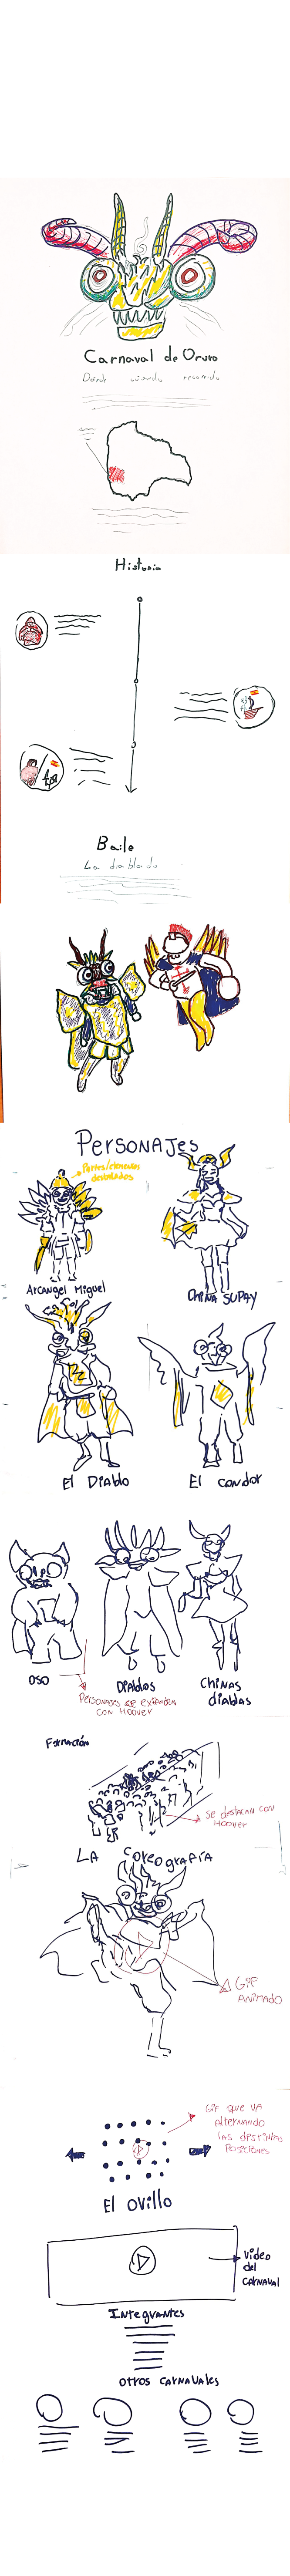 Carnaval de Oruro
Donde cuando recorrido
Historia
Baile
La diablada
Personajes
Partes/elementos
destacados
Arcangel Miguel
China Supay
El Diablo
El condor
oso
Diablos
Chinas
diablas
Personajes se expanden
con Hoover
Formación
se destacan con
Hoover
La Coreografía
GIF
Animado
GIF que va
alternando
las distintas
posiciones
El ovillo
Video
del
carnaval
Integrantes
otros carnavales